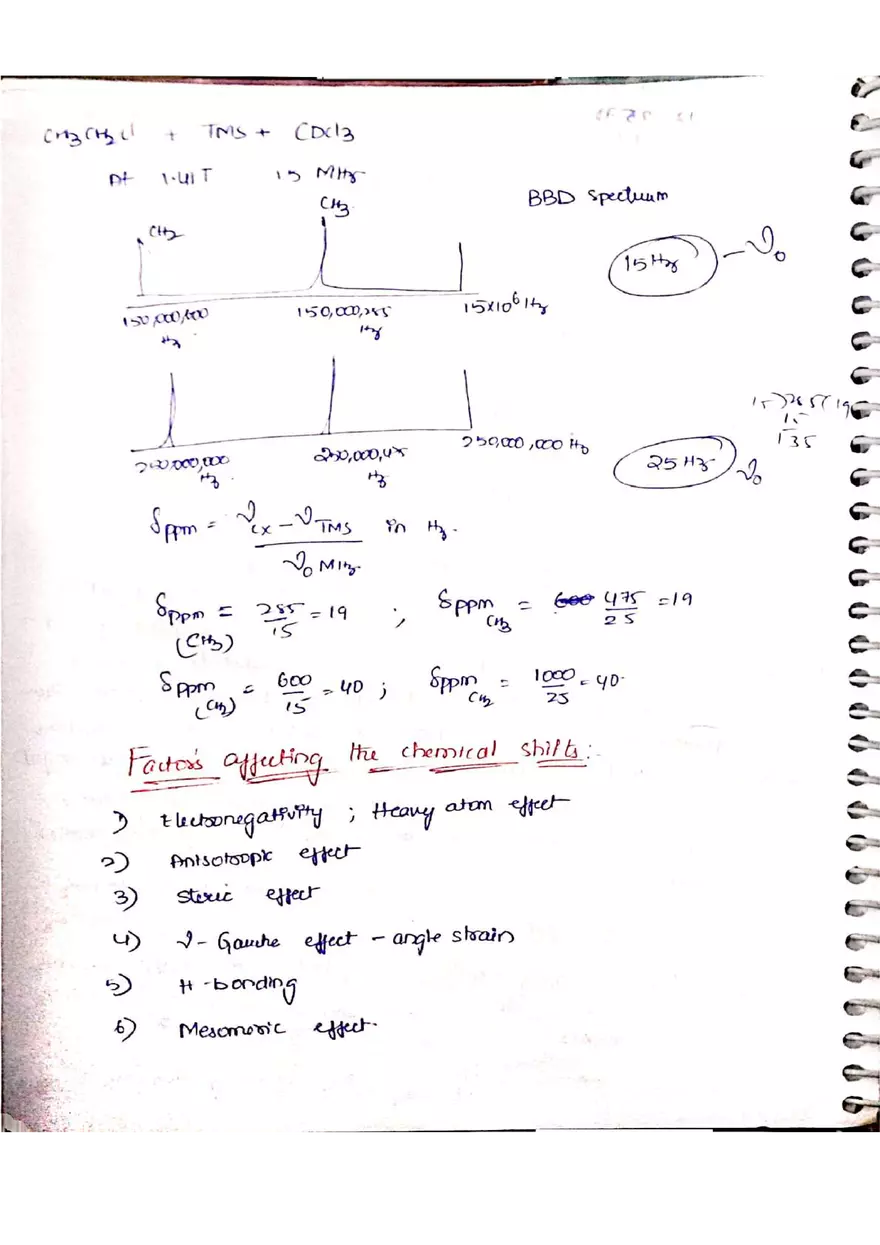 CH3CH2Cl + TMS + CDCl3
At 1.41T 15 MHz
BBD Spectrum
CH2 CH3
15Hz - ν0
150,000,600 Hz 150,000,285 Hz 15x10^6 Hz
15)285(19
15
135
250,000,000 Hz 250,000,475 Hz 250,000,000 Hz
25 Hz ν0
δppm = νcx - νTMS in Hz.
ν0 MHz
δppm (CH3) = 285/15 = 19 ; δppm CH3 = 475/25 = 19
δppm (CH2) = 600/15 = 40 ; δppm CH2 = 1000/25 = 40.
Factors affecting the chemical shifts:-
1) Electronegativity ; Heavy atom effect
2) Anisotropic effect
3) Steric effect
4) ν- Gauche effect - angle strain
5) H-bonding
6) Mesomeric effect.